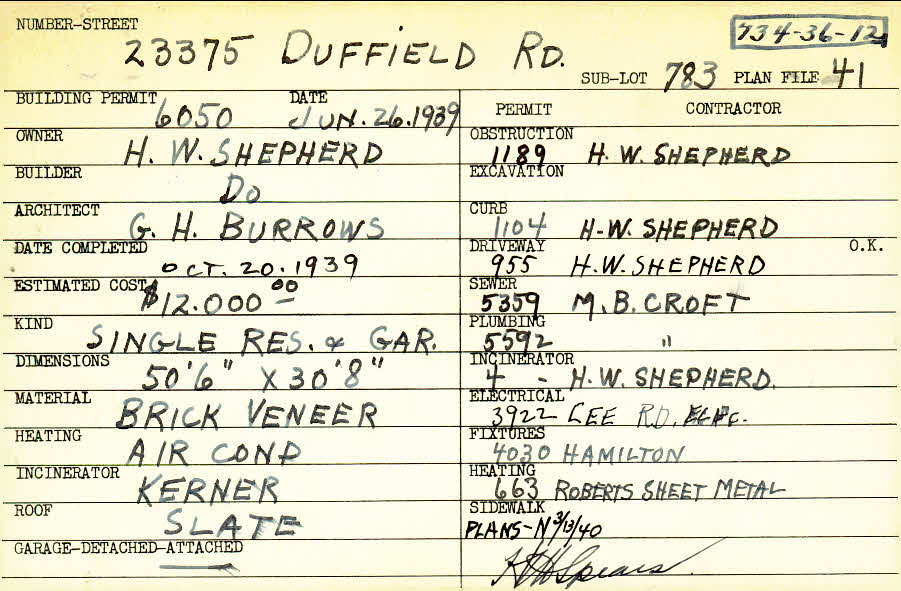 NUMBER-STREET
23375 DUFFIELD RD.
734-36-12
SUB-LOT 783 PLAN FILE 41
BUILDING PERMIT 6050 DATE JUN. 26.1939
OWNER H. W. SHEPHERD
BUILDER DO
ARCHITECT G. H. BURROWS
DATE COMPLETED OCT. 20.1939
ESTIMATED COST $12.000 00
KIND SINGLE RES. & GAR.
DIMENSIONS 50'6" X 30'8"
MATERIAL BRICK VENEER
HEATING AIR COND
INCINERATOR KERNER
ROOF SLATE
GARAGE-DETACHED-ATTACHED
PERMIT CONTRACTOR
OBSTRUCTION 1189 H. W. SHEPHERD
EXCAVATION
CURB 1104 H-W. SHEPHERD
DRIVEWAY 955 H.W. SHEPHERD O.K.
SEWER 5359 M. B. CROFT
PLUMBING 5592 "
INCINERATOR 4 - H. W. SHEPHERD.
ELECTRICAL 3922 LEE RD. ELEC.
FIXTURES 4030 HAMILTON
HEATING 663 ROBERTS SHEET METAL
SIDEWALK
PLANS-N 3/13/40
Spears.